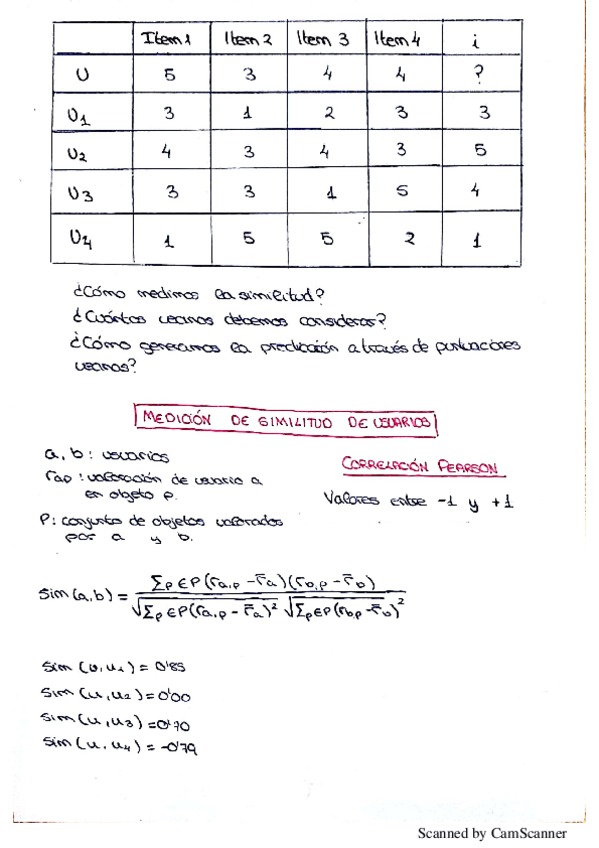 Item 1 Item 2 Item 3 Item 4 i
U 5 3 4 4 ?
U1 3 1 2 3 3
U2 4 3 4 3 5
U3 3 3 1 5 4
U4 1 5 5 2 1
¿Cómo medimos la similitud?
¿Cuántos vecinos debemos considerar?
¿Cómo generamos la predicción a través de puntuaciones
vecinas?
MEDICIÓN DE SIMILITUD DE USUARIOS
a, b : usuarios
rap : valoración de usuario a
en objeto p.
P : conjunto de objetos valorados
por a y b.
CORRELACIÓN PEARSON
Valores entre -1 y +1
Sim (a,b) = ∑p∈P (ra,p - r̄a)(rb,p - r̄b) / √∑p∈P (ra,p - r̄a)² √∑p∈P (rb,p - r̄b)²
Sim (u,u1) = 0'85
Sim (u,u2) = 0'00
Sim (u,u3) = 0'70
Sim (u,u4) = -0'79
Scanned by CamScanner